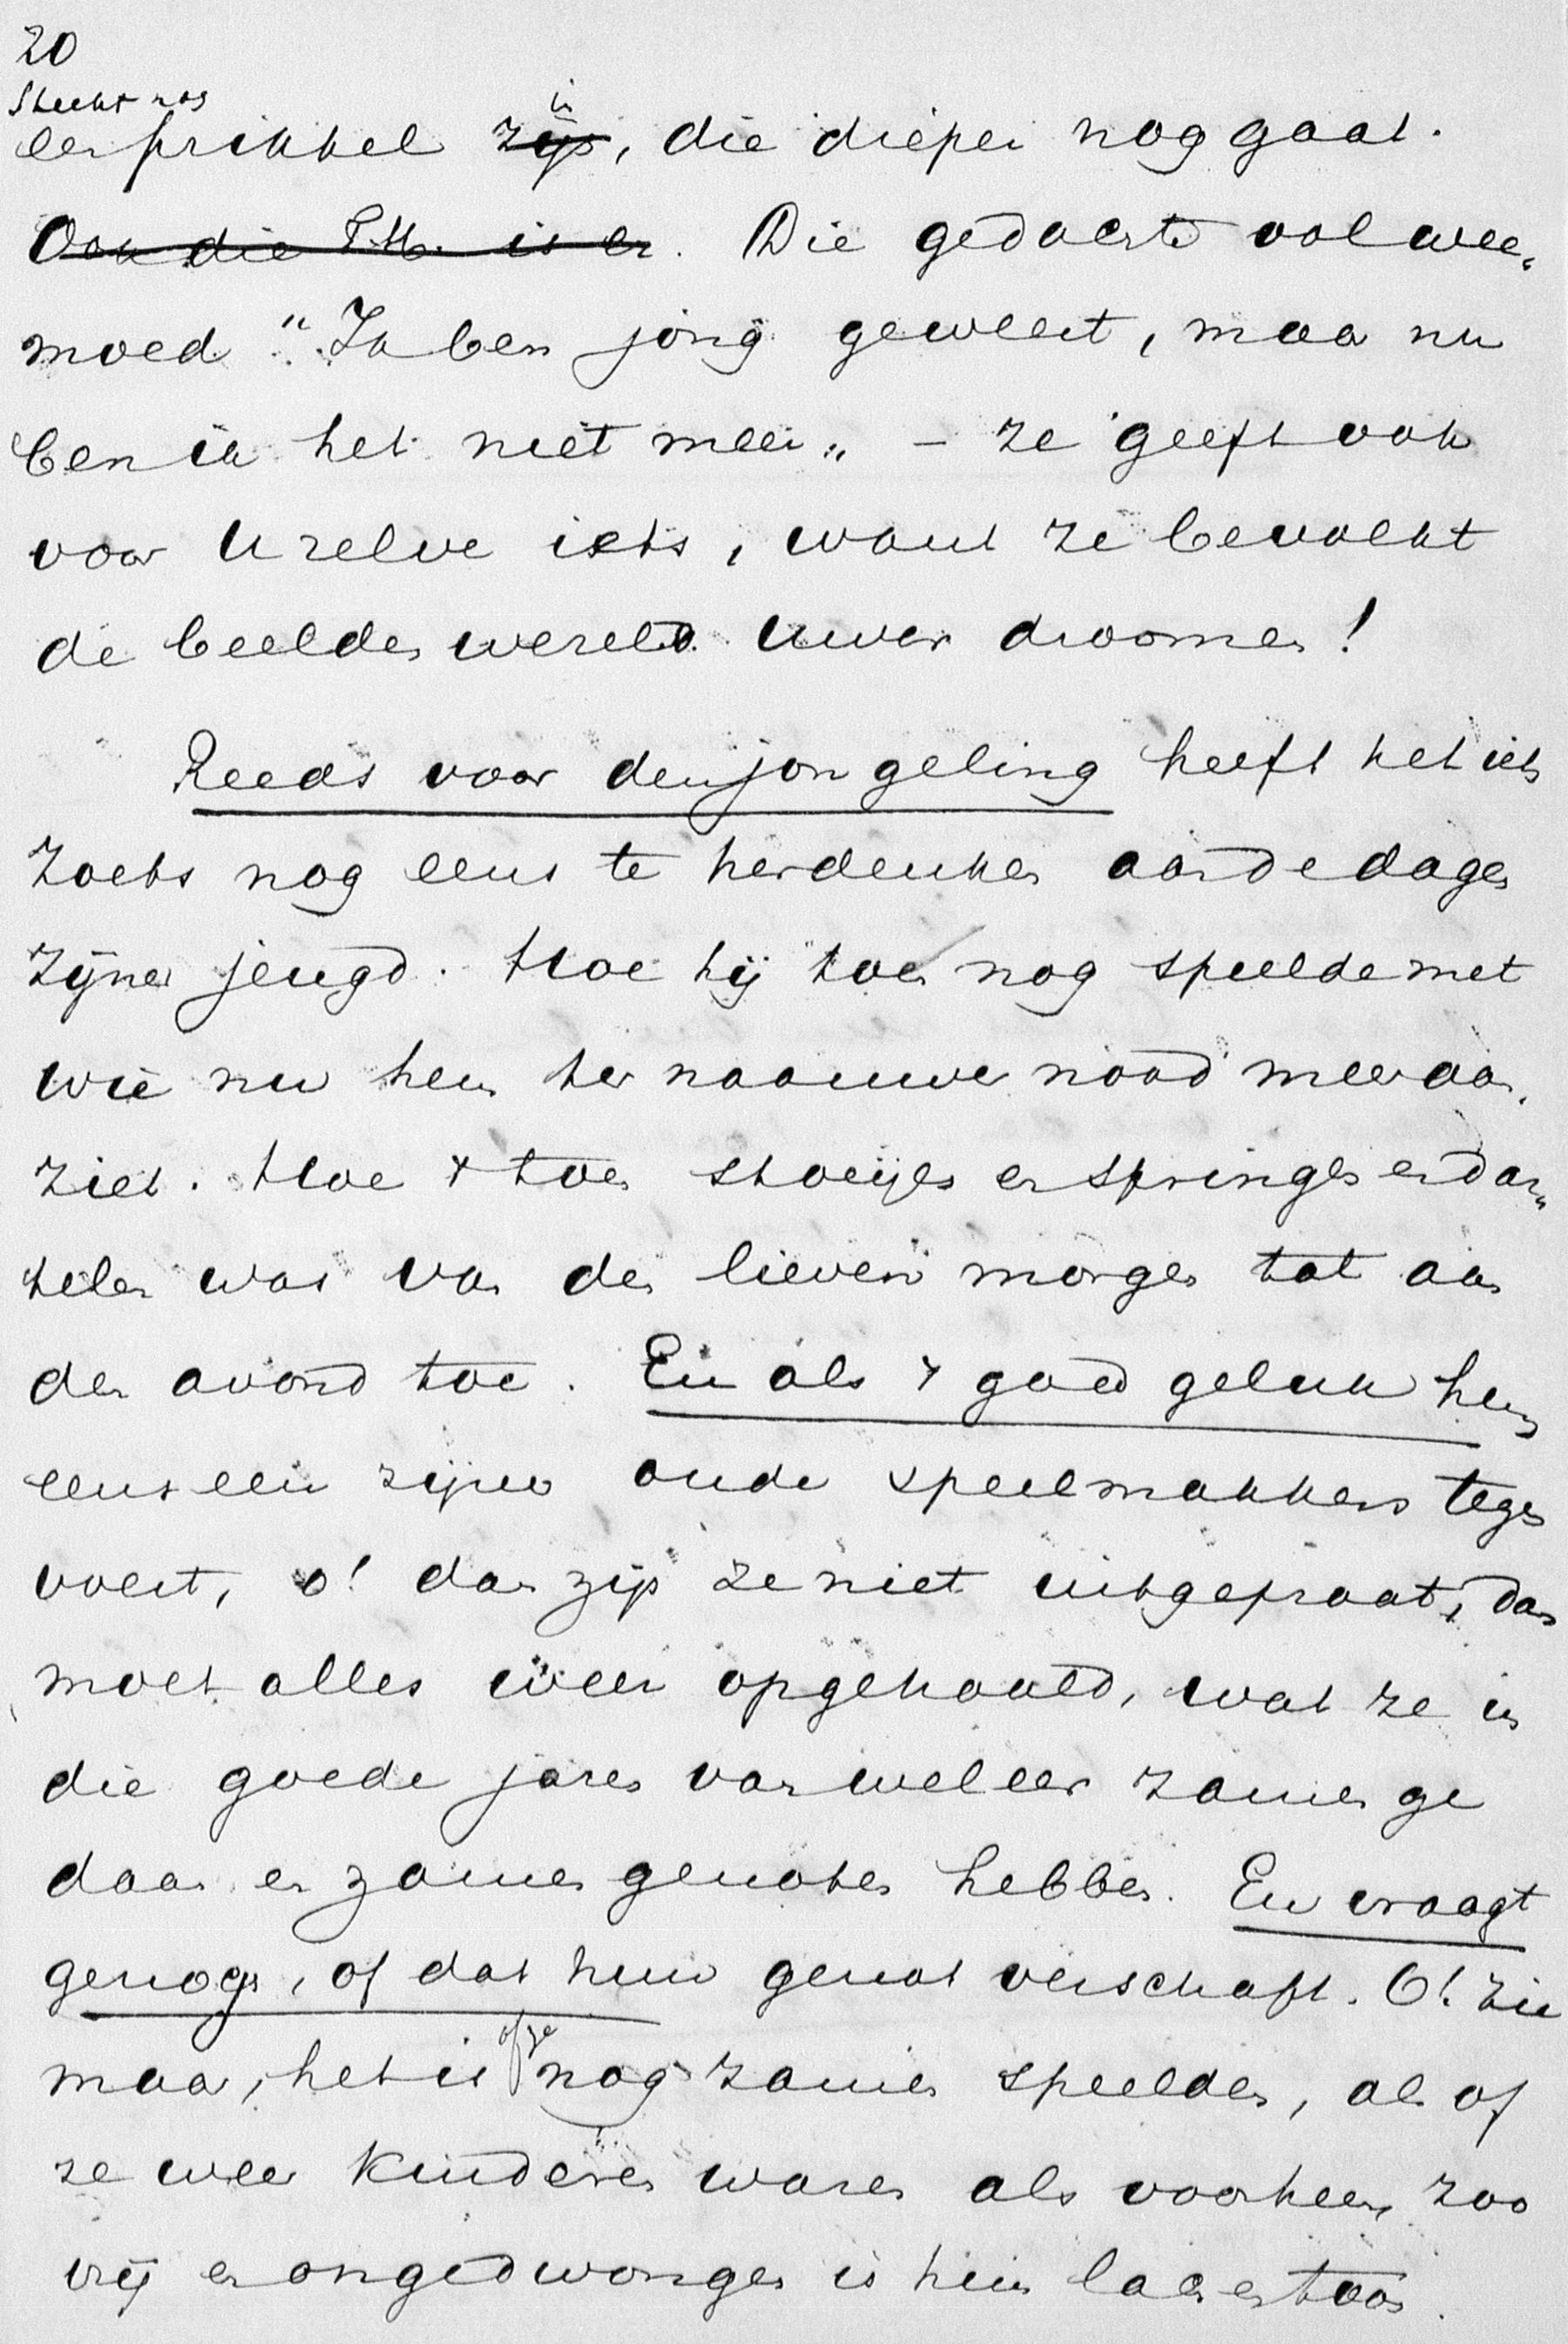 20
Slechts nog
een prikkel zijn, die dieper nog gaat.
in
Ook die T.M. is er. Die gedachte vol wee„
moed „Ik ben jong geweest, maar nu
ben ik het niet meer„ – ze geeft ook
voor U zelve iets, want ze bevolkt
de beelden wereld Uwer droomen!
Reeds voor den jongeling heeft het iets
zoets nog eens te herdenken aan de dagen
zijner jeugd. Hoe hij toen nog speelde met
wie nu hem ter naauwer nood meer aan„
ziet. Hoe 't toen stoeijen en springen en dar„
telen was van den lieven morgen tot aan
den avond toe. En als 't goed geluk hem
eens een zijner oude speelmakkers tegen
voert, o! dan zijn ze niet uitgepraat, dan
moet alles weer opgehaald, wat ze in
die goede jaren van weleer zamen ge
daan en zamen genoten hebben. En vraagt
genoeg, of dat hun genot verschaft. O! zie
maar, het is of ze nog zamen speelden, als of
ze weer kinderen waren als voorheen, zoo
vrij en ongedwongen is hun lach en toon.